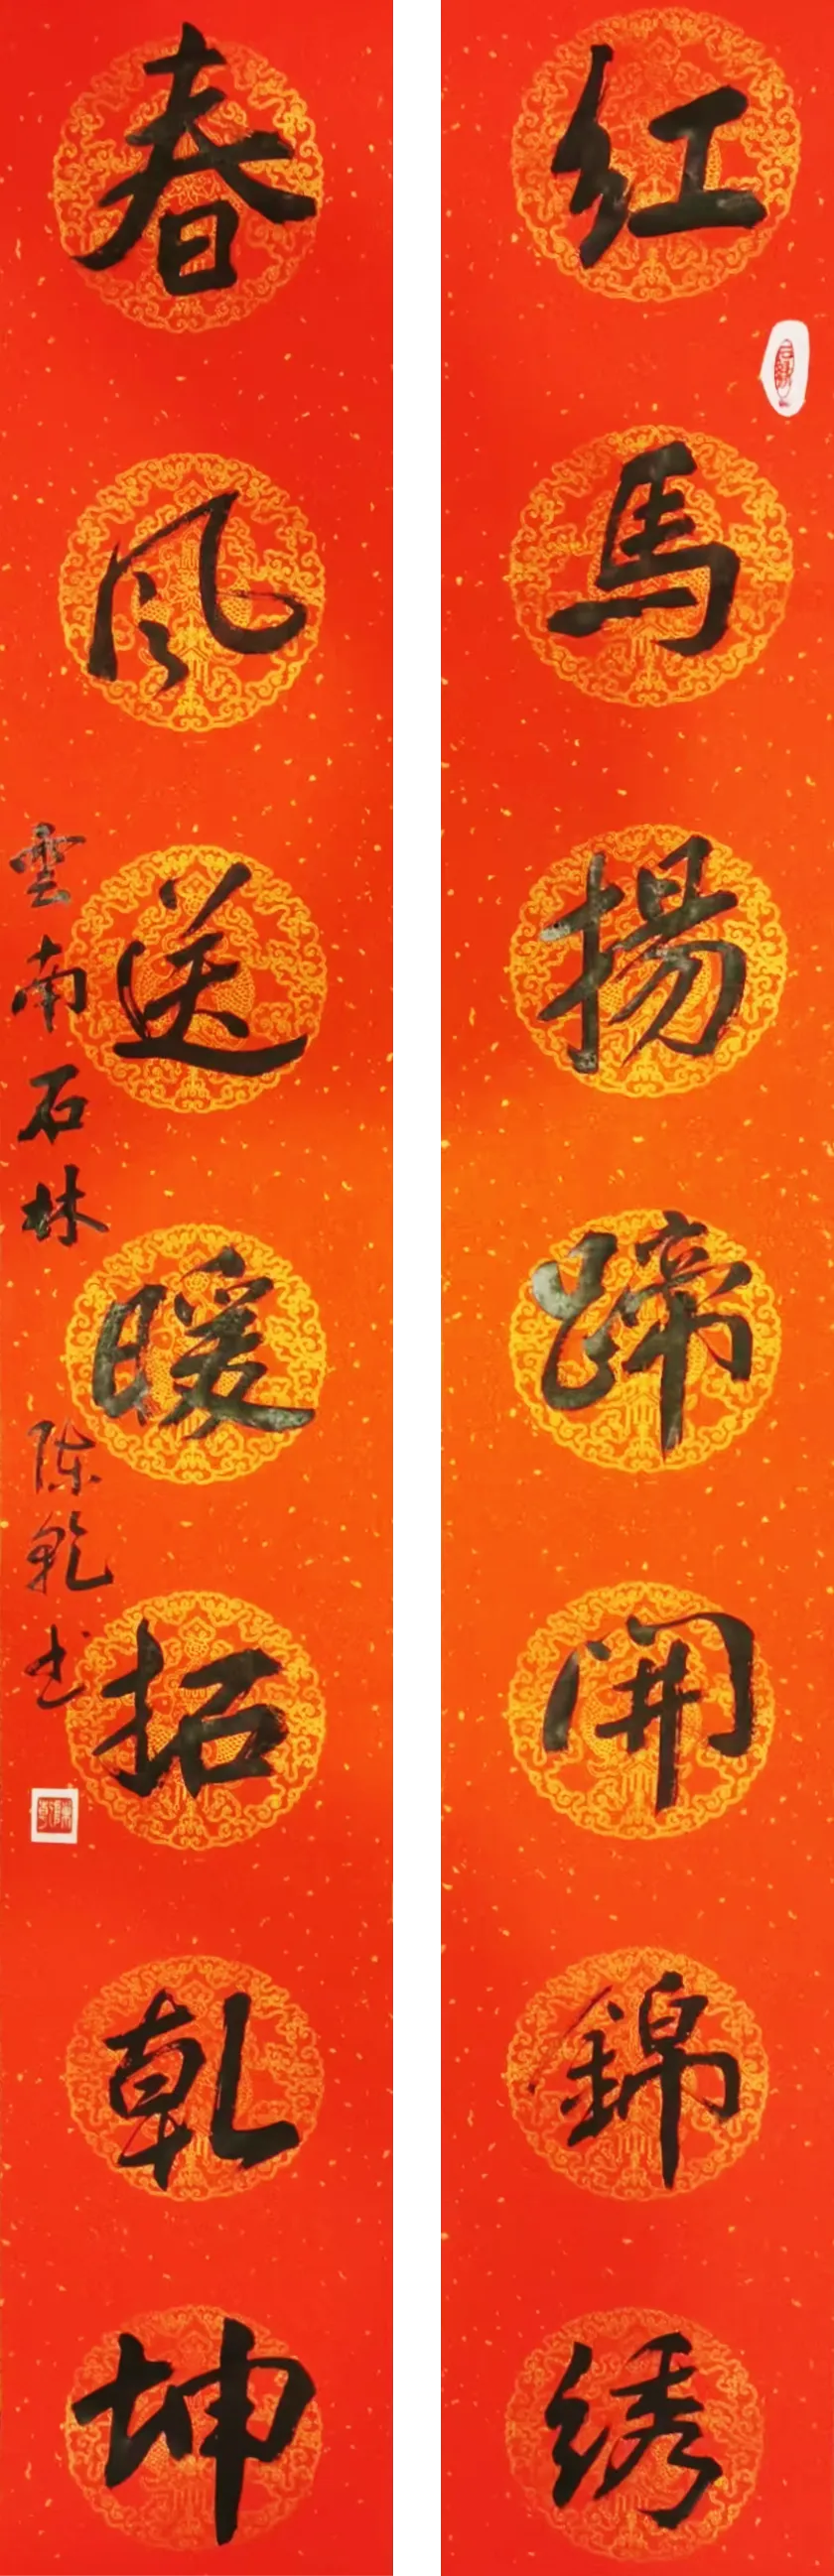 红馬揚蹄開錦绣
春风送暖拓乾坤
雲南石林 陈乾书